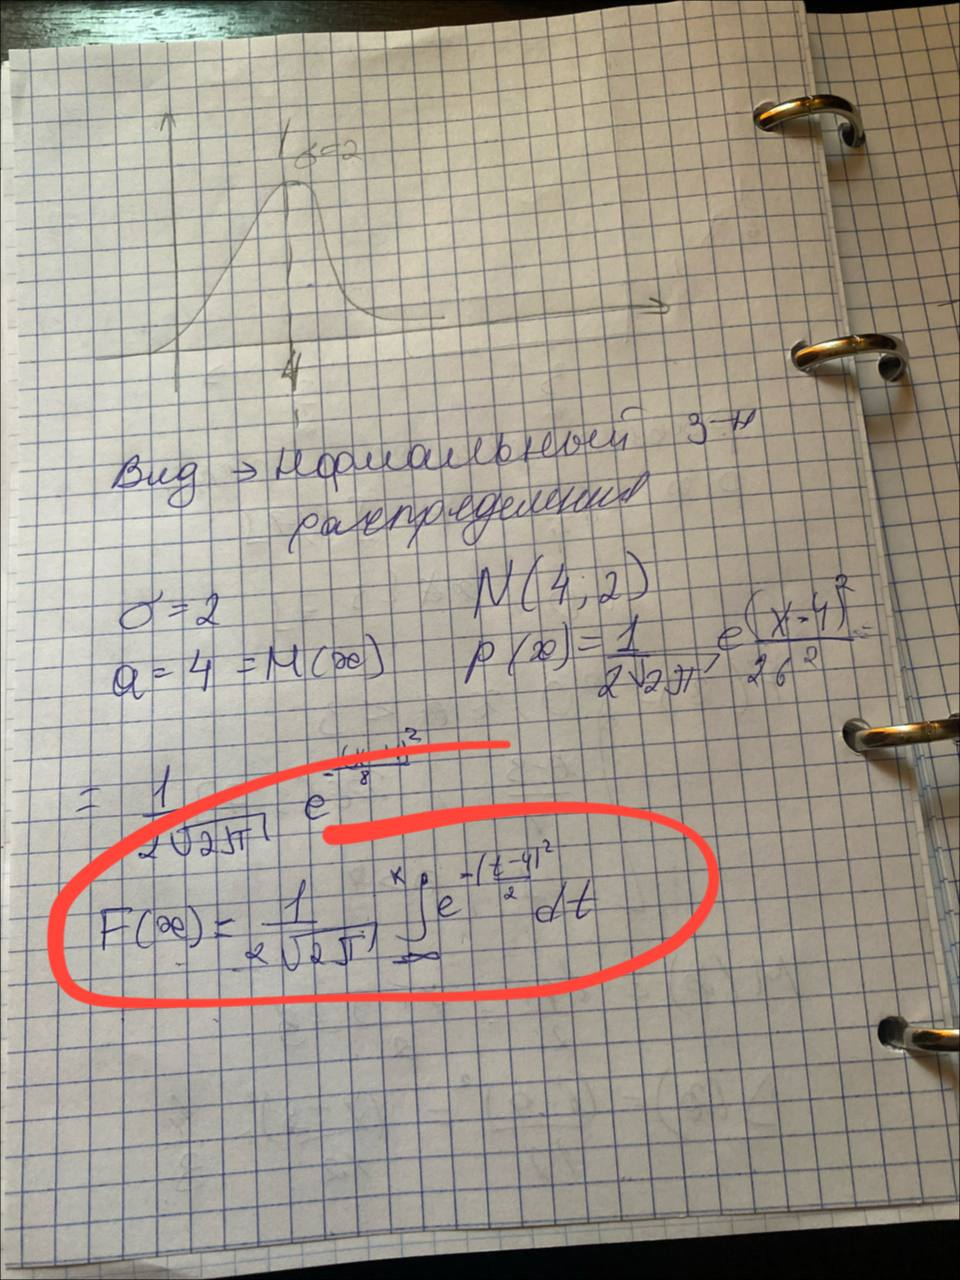 σ=2
4
Вид → Нормальный з-н
распределения
σ = 2
N(4; 2)
a = 4 = M(x)
p(x) = 1/(2√2π) e (x-4)²/2σ² =
= 1/(2√2π) e
F(x) = 1/(2√2π) ∫_{-∞}^{x} e^{-(t-4)²/2} dt